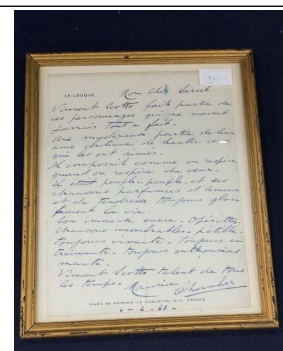 LA LOUQUE
Mon cher Sirut -
Vincent Scotto fait partie de
ces personnages qui ne meurent
jamais tout à fait -
Une mystérieuse partie de lui
qui les ont aimés -
Il composait comme on respire
quand on respire du coeur -
Il était peuple - peuple - et ses
chansons parfumées d'amour
et de tendresse toujours
Son immense oeuvre - Opérettes
chansons innombrables - pétille -
toujours vivante - toujours en
trainante - toujours enthousias
mante -
Vincent Scotto talent de tous
les temps -
Maurice Chevalier
PARC DE MARNES-LA-COQUETTE (S.-&-O.) FRANCE